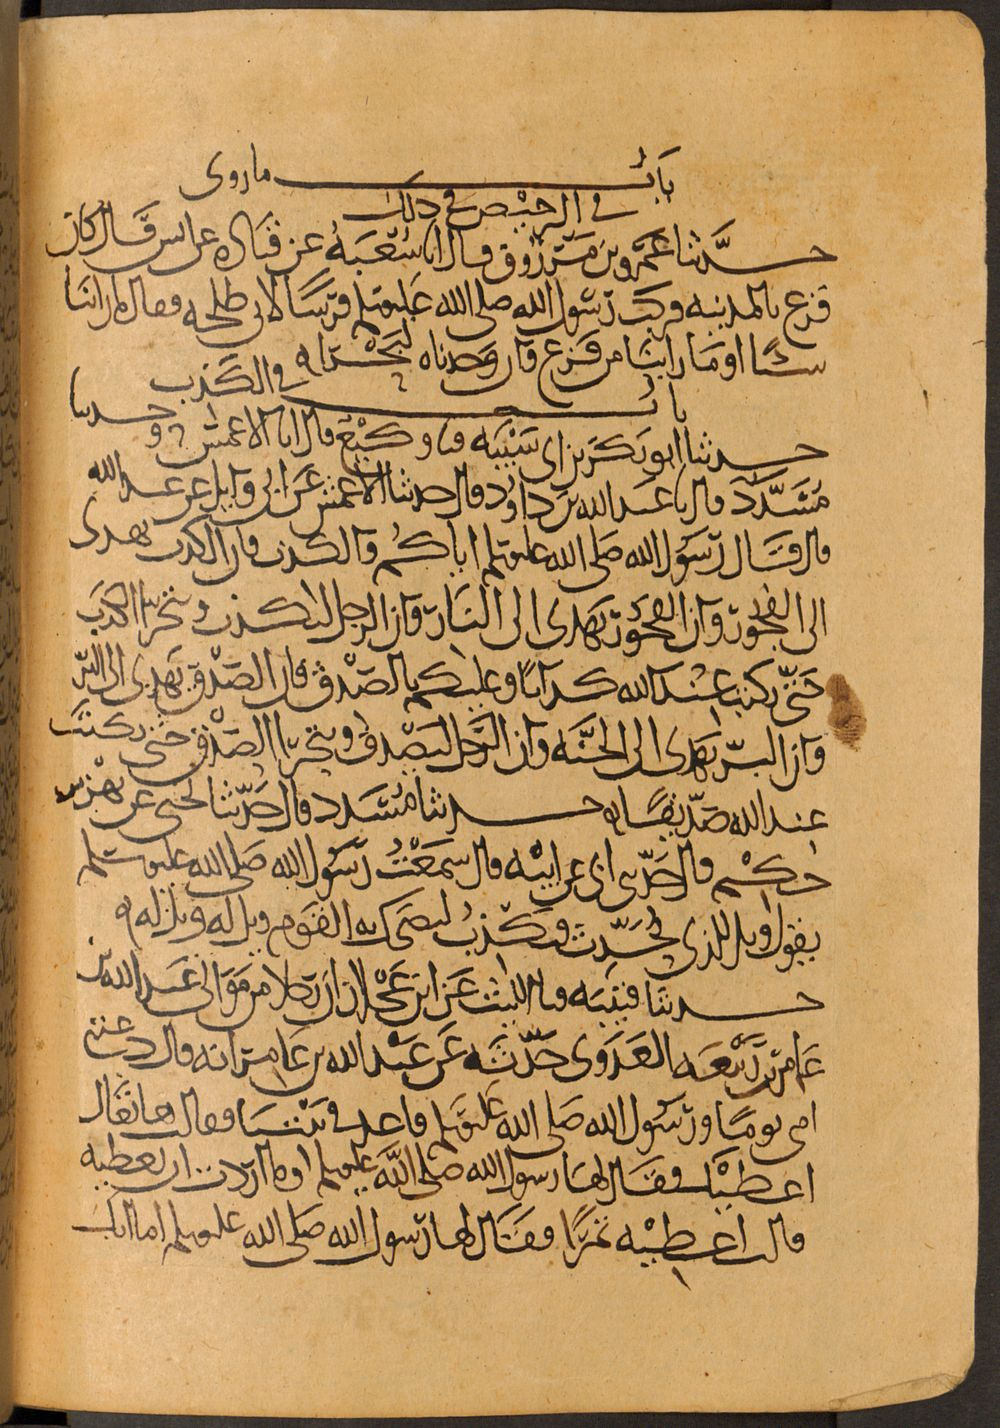 باب ما روي
في الرخيص في ذلك
حدثنا عمرو بن مرزوق قال انا شعبة عن قتاده عن انس قال كان
فزع بالمدينه فركب رسول الله صلى الله عليه وسلم فرسا لابي طلحه فقال ما راينا
شيئا او ما راينا من فزع وان وجدناه لبحرا
باب في الكذب
حدثنا ابو بكر بن ابي شيبه قال نا وكيع قال انا الاعمش ح وحدثنا
مسدد قال نا عبد الله بن داود قال حدثنا الاعمش عن ابي وايل عن عبد الله
قال قال رسول الله صلى الله عليه وسلم اياكم والكذب فان الكذب يهدي
الى الفجور وان الفجور يهدي الى النار وان الرجل ليكذب ويتحرا الكذب
حتى يكتب عند الله كذابا وعليكم بالصدق فان الصدق يهدي الى البر
وان البر يهدي الى الجنه وان الرجل ليصدق ويتحرا الصدق حتى يكتب
عند الله صديقا حدثنا مسدد قال حدثنا يحيى عن بهز بن
حكيم قال حدثني ابي عن ابيه قال سمعت رسول الله صلى الله عليه وسلم
يقول ويل للذي يحدث فيكذب ليضحك به القوم ويل له ويل له
حدثنا قتيبه قال نا الليث عن ابن عجلان ان رجلا من موالي عبد الله بن
عامر بن ربيعه العدوي حدثه عن عبد الله بن عامر انه قال دعتني
امي يوما ورسول الله صلى الله عليه وسلم قاعد في بيتنا فقالت ها تعال
اعطيك فقال لها رسول الله صلى الله عليه وسلم وما اردت ان تعطيه
قالت اعطيه تمرا فقال لها رسول الله صلى الله عليه وسلم اما انك